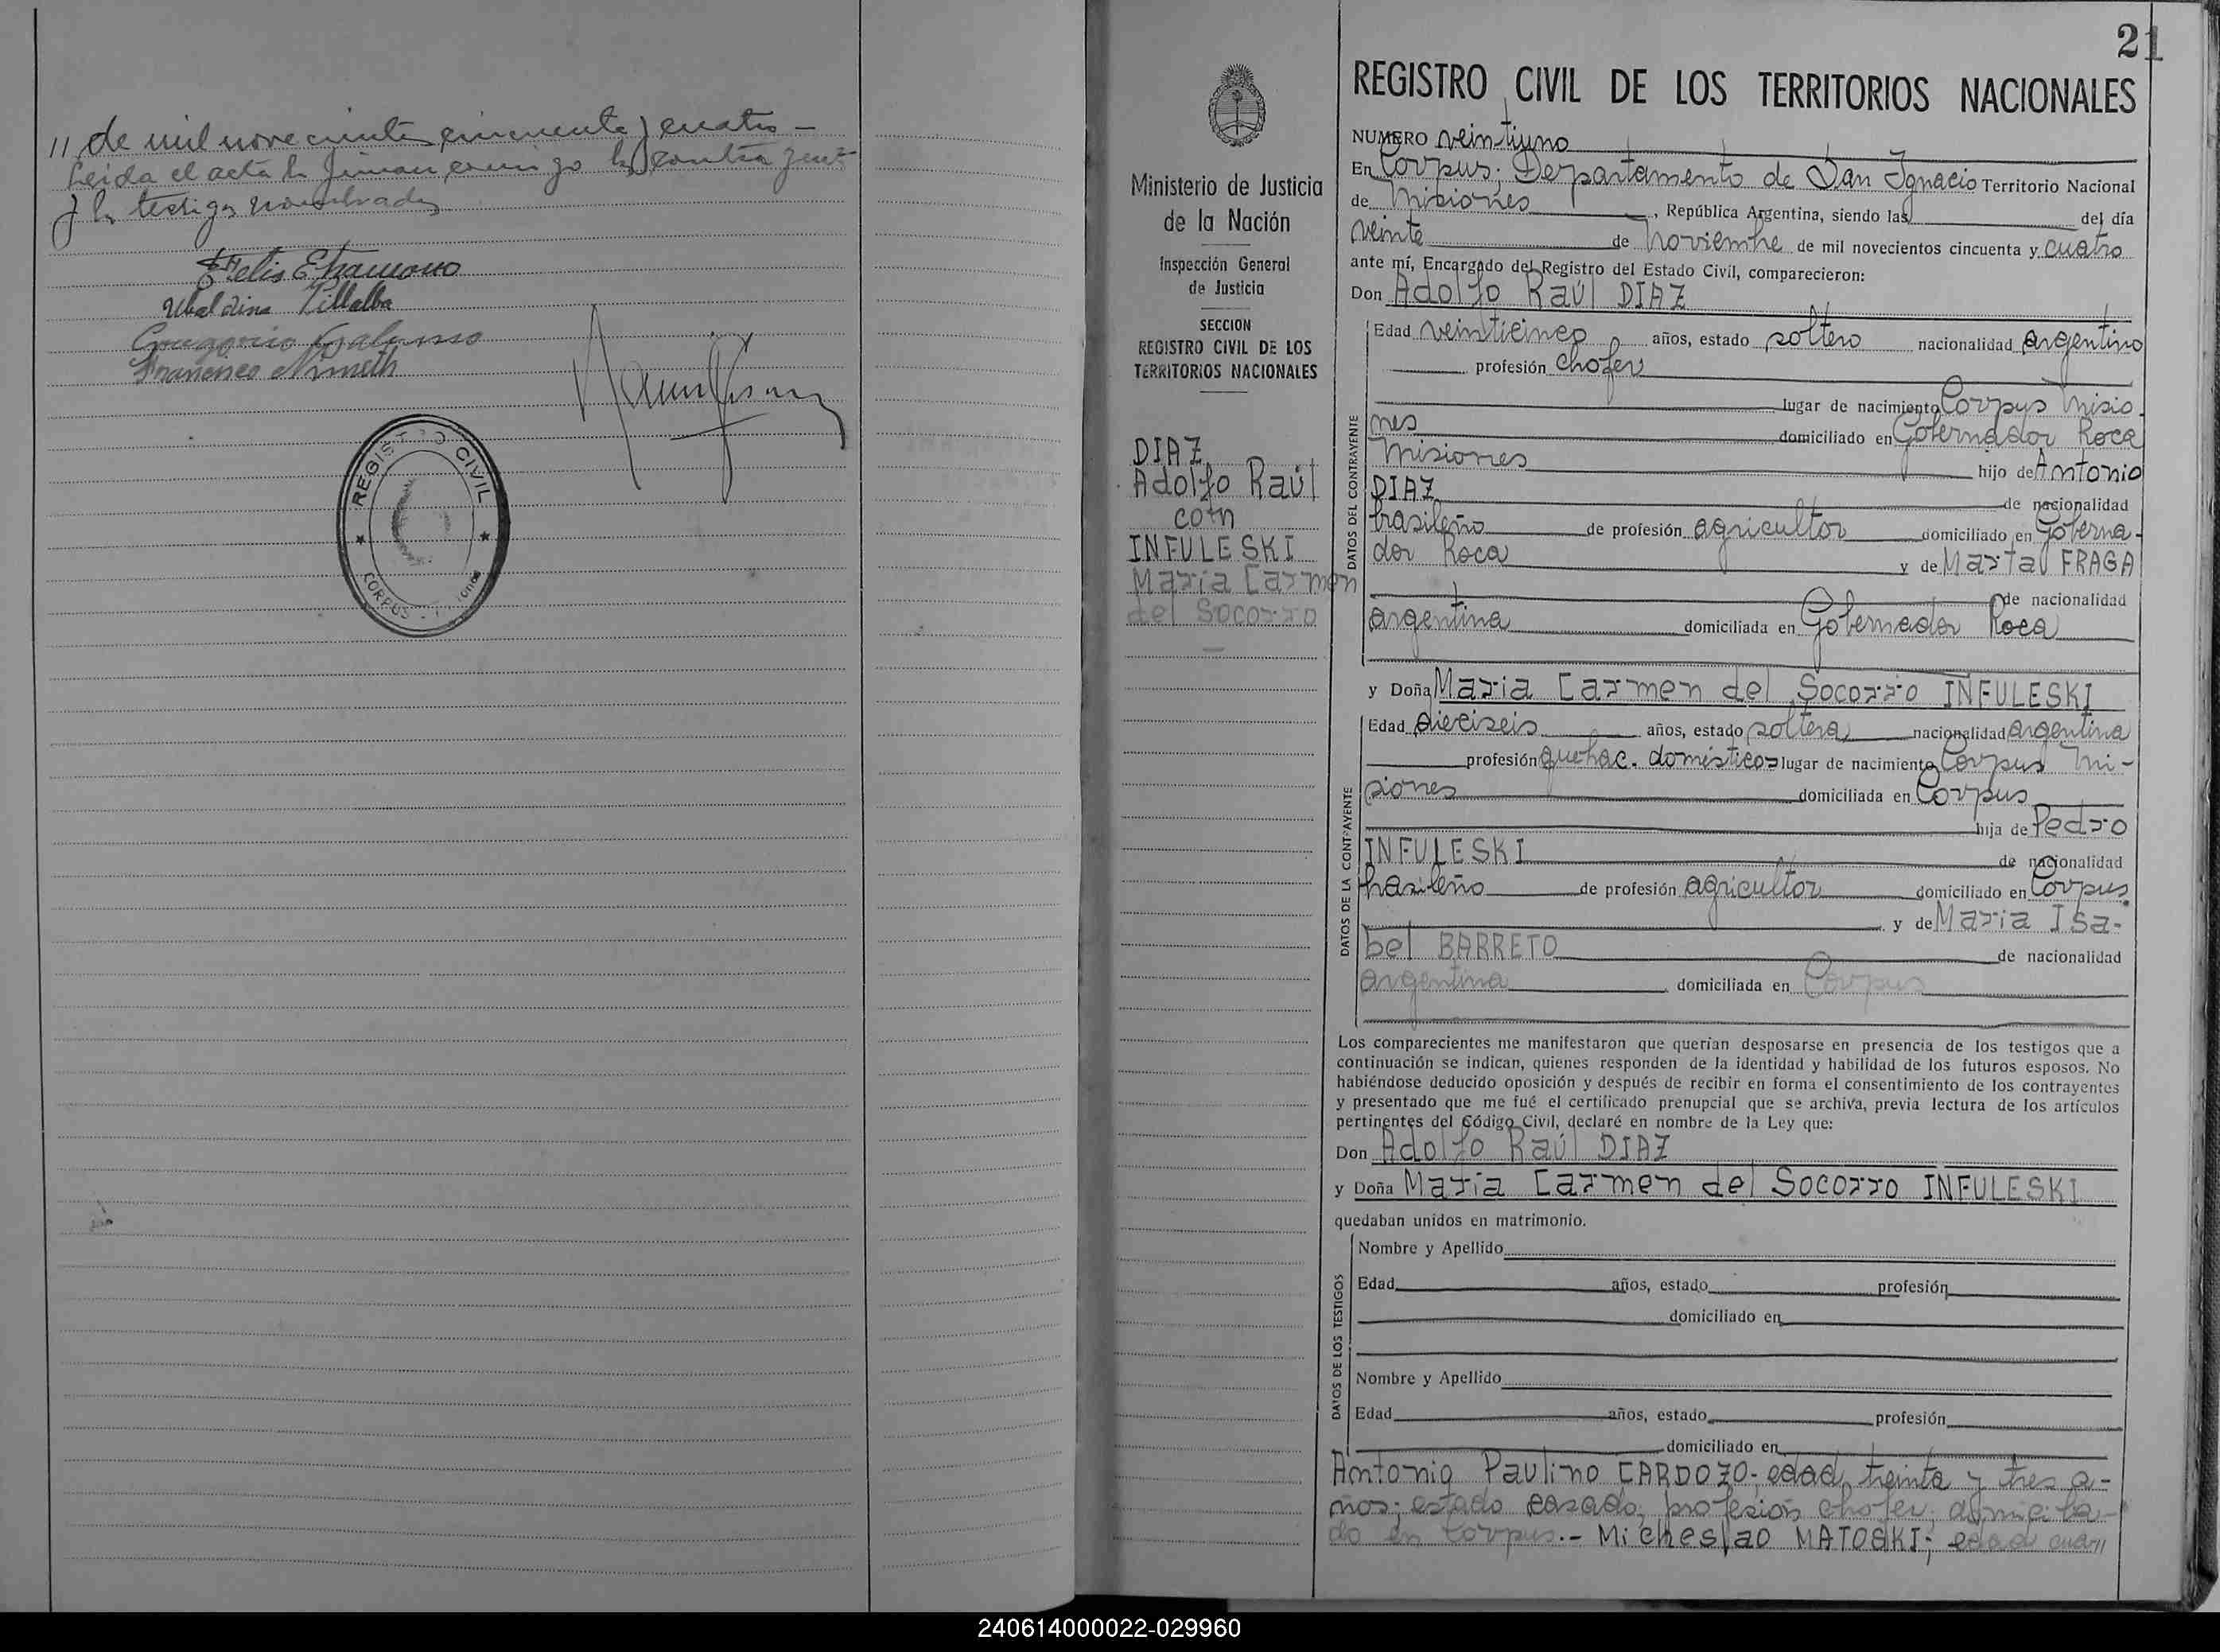 // de mil novecientos cincuenta y cuatro -
Leida el acta la firman conmigo los contrayent
y los testigos nombrados
Ubaldina Villalba
Gregorio Galarza
Francisco Nimeth
REGISTRO CIVIL
CORPUS
21
Ministerio de Justicia
de la Nación
Inspección General
de Justicia
SECCION
REGISTRO CIVIL DE LOS
TERRITORIOS NACIONALES
DIAZ
Adolfo Raúl
con
INFULESKI
Maria Carmen
del Socorro
REGISTRO CIVIL DE LOS TERRITORIOS NACIONALES
NUMERO veintiuno
En Corpus; Departamento de San Ignacio Territorio Nacional
de Misiones, República Argentina, siendo las del día
veinte de Noviembre de mil novecientos cincuenta y cuatro
ante mí, Encargado del Registro del Estado Civil, comparecieron:
Don Adolfo Raúl DIAZ
DATOS DEL CONTRAYENTE
Edad veinticinco años, estado soltero nacionalidad argentino
profesión chofer
lugar de nacimiento Corpus Misio-
nes domiciliado en Gobernador Roca
Misiones hijo de Antonio
DIAZ de nacionalidad
brasileño de profesión agricultor domiciliado en Goberna-
dor Roca y de Marta FRAGA
de nacionalidad
argentina domiciliada en Gobernador Roca
y Doña Maria Carmen del Socorro INFULESKI
DATOS DE LA CONTRAYENTE
Edad dieciseis años, estado soltera nacionalidad argentina
profesión quehac. domésticos lugar de nacimiento Corpus Mi-
siones domiciliada en Corpus
hija de Pedro
INFULESKI de nacionalidad
brasileño de profesión agricultor domiciliado en Corpus
y de Maria Isa-
bel BARRETO de nacionalidad
argentina domiciliada en Corpus
Los comparecientes me manifestaron que querían desposarse en presencia de los testigos que a
continuación se indican, quienes responden de la identidad y habilidad de los futuros esposos. No
habiéndose deducido oposición y después de recibir en forma el consentimiento de los contrayentes
y presentado que me fué el certificado prenupcial que se archiva, previa lectura de los artículos
pertinentes del Código Civil, declaré en nombre de la Ley que:
Don Adolfo Raúl DIAZ
y Doña Maria Carmen del Socorro INFULESKI
quedaban unidos en matrimonio.
DATOS DE LOS TESTIGOS
Nombre y Apellido
Edad años, estado profesión
domiciliado en
Nombre y Apellido
Edad años, estado profesión
domiciliado en
Antonio Paulino CARDOZO; edad treinta y tres a-
ños; estado casado; profesión chofer; domicilia-
do en Corpus.- Micheslao MATOSKI; edad cuar//
240614000022-029960